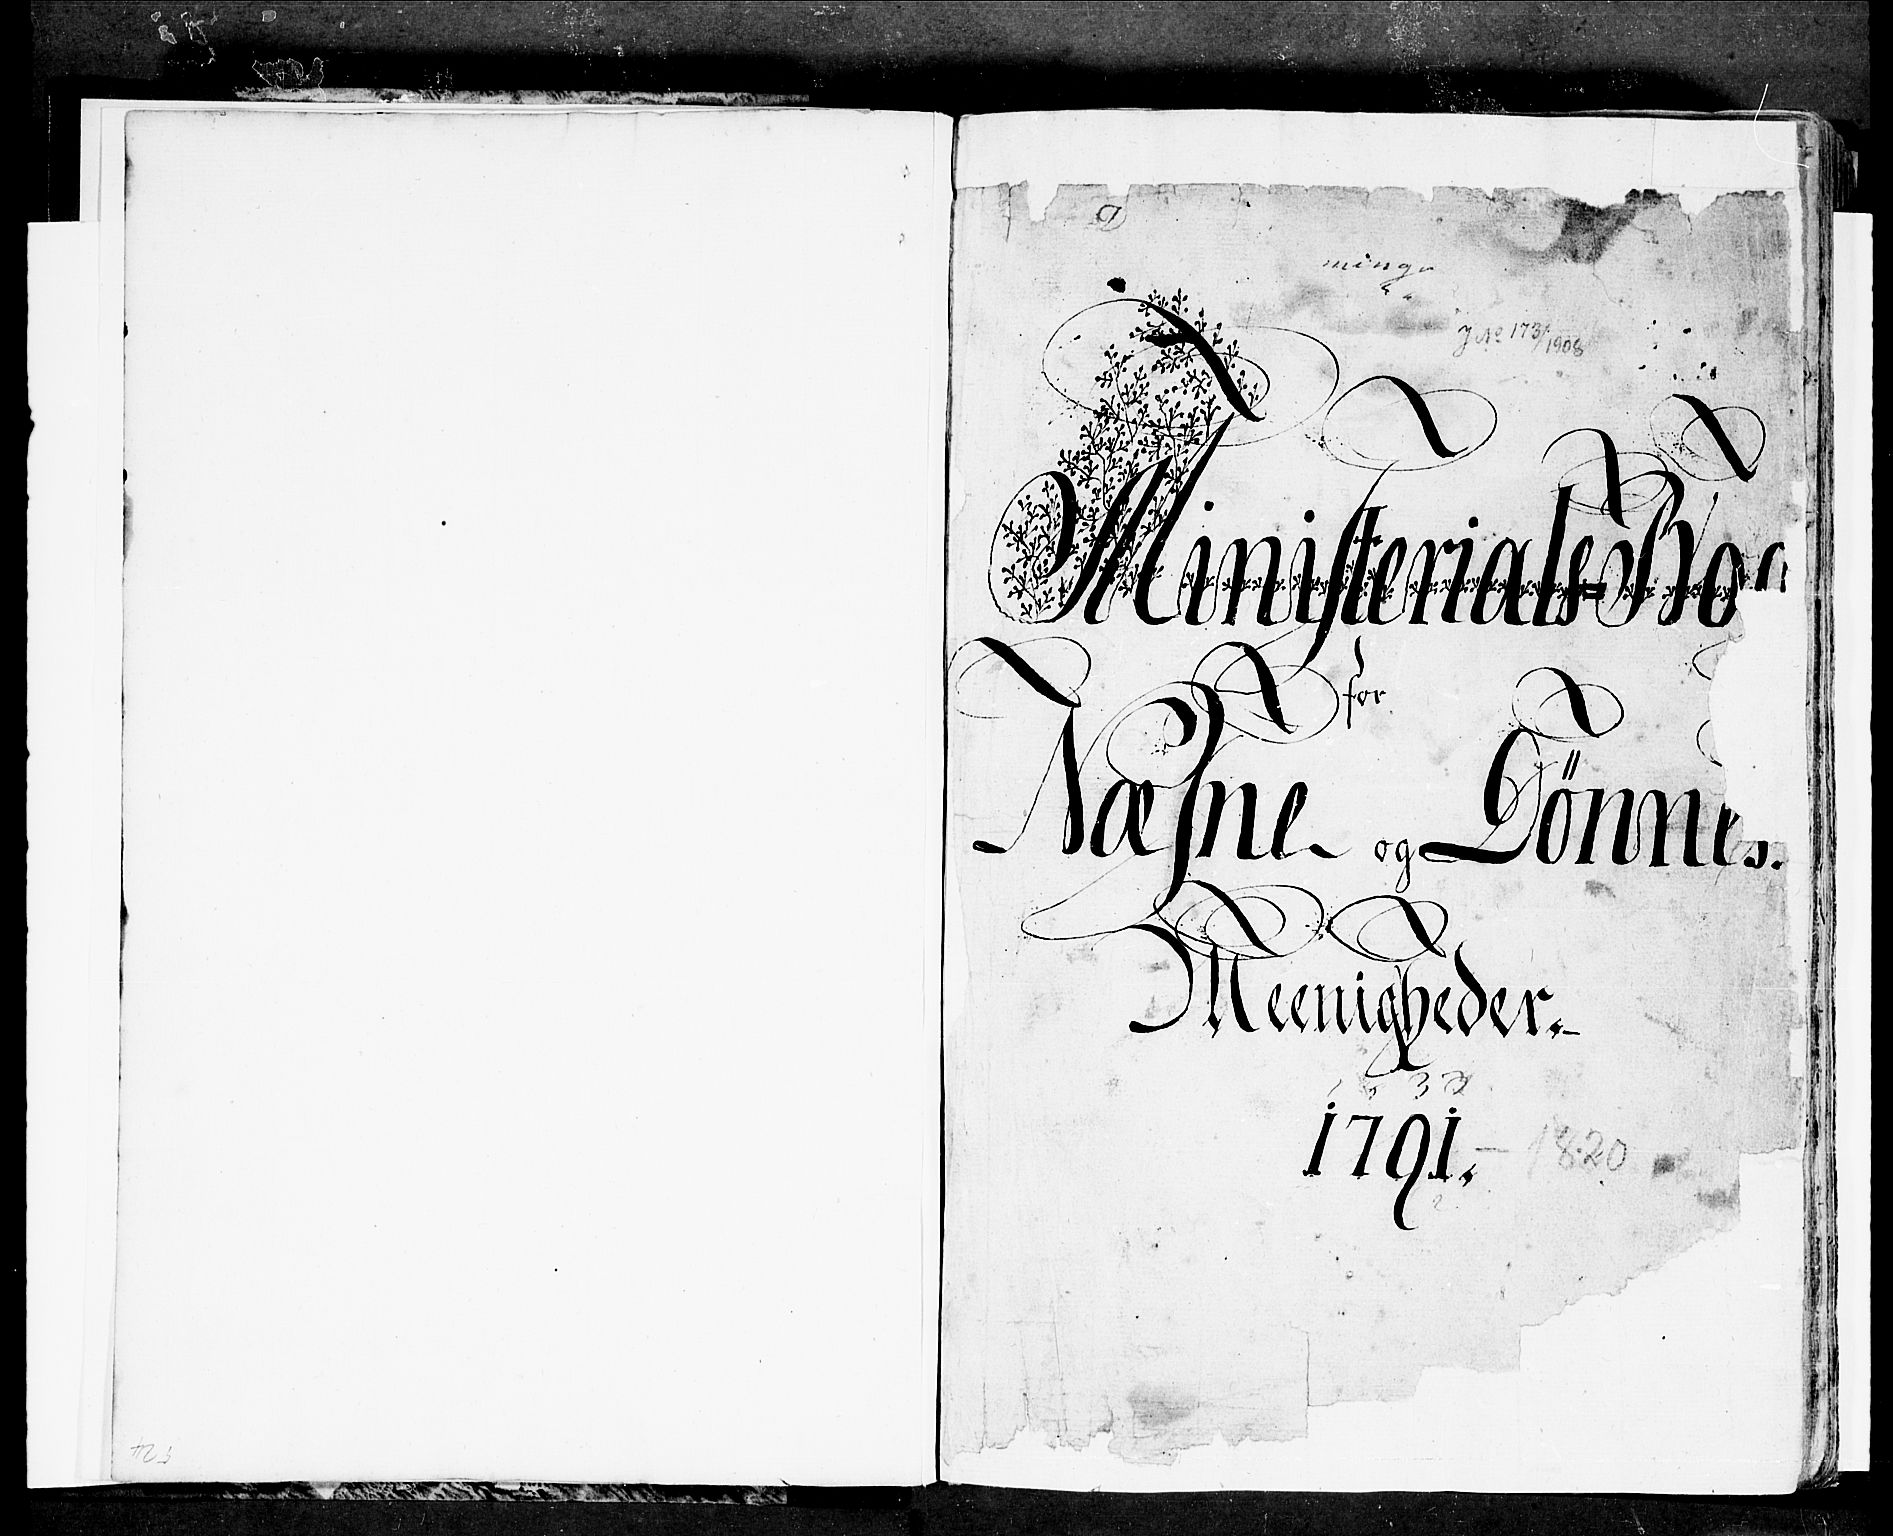 J No 173/1908
Ministerials=Bog
for
Næsne og Dønnes.
Meenigheder.
1791. — 1820